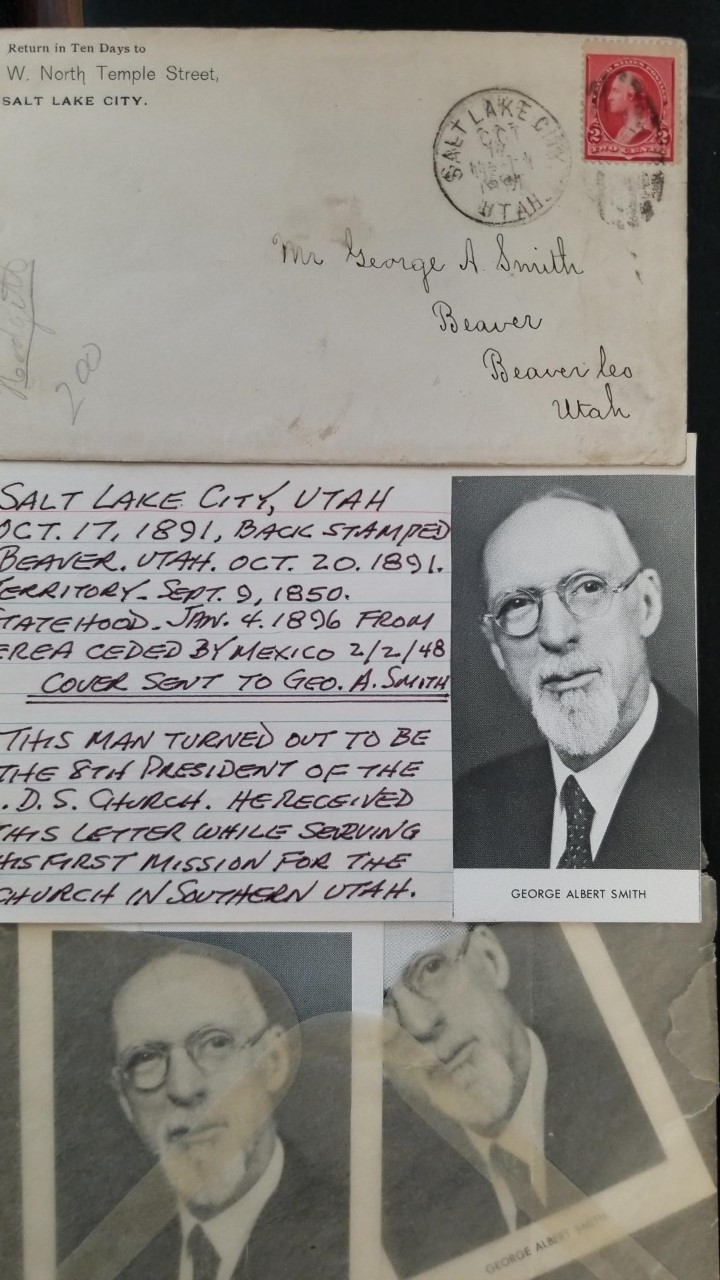 Return in Ten Days to
W. North Temple Street,
SALT LAKE CITY.
SALT LAKE CITY
OCT
UTAH.
2 2
TWO CENTS
Mr George A. Smith
Beaver
Beaver Co
Utah
200
SALT LAKE CITY, UTAH
OCT. 17, 1891, BACK STAMPED
BEAVER. UTAH. OCT. 20. 1891.
ERRITORY - SEPT. 9, 1850.
STATEHOOD - JAN. 4. 1896 FROM
EREA CEDED BY MEXICO 2/2/48
COVER SENT TO GEO. A. SMITH
THIS MAN TURNED OUT TO BE
THE 8TH PRESIDENT OF THE
. D. S. CHURCH. HE RECEIVED
THIS LETTER WHILE SERVING
HIS FIRST MISSION FOR THE
CHURCH IN SOUTHERN UTAH.
GEORGE ALBERT SMITH
GEORGE ALBERT SMITH